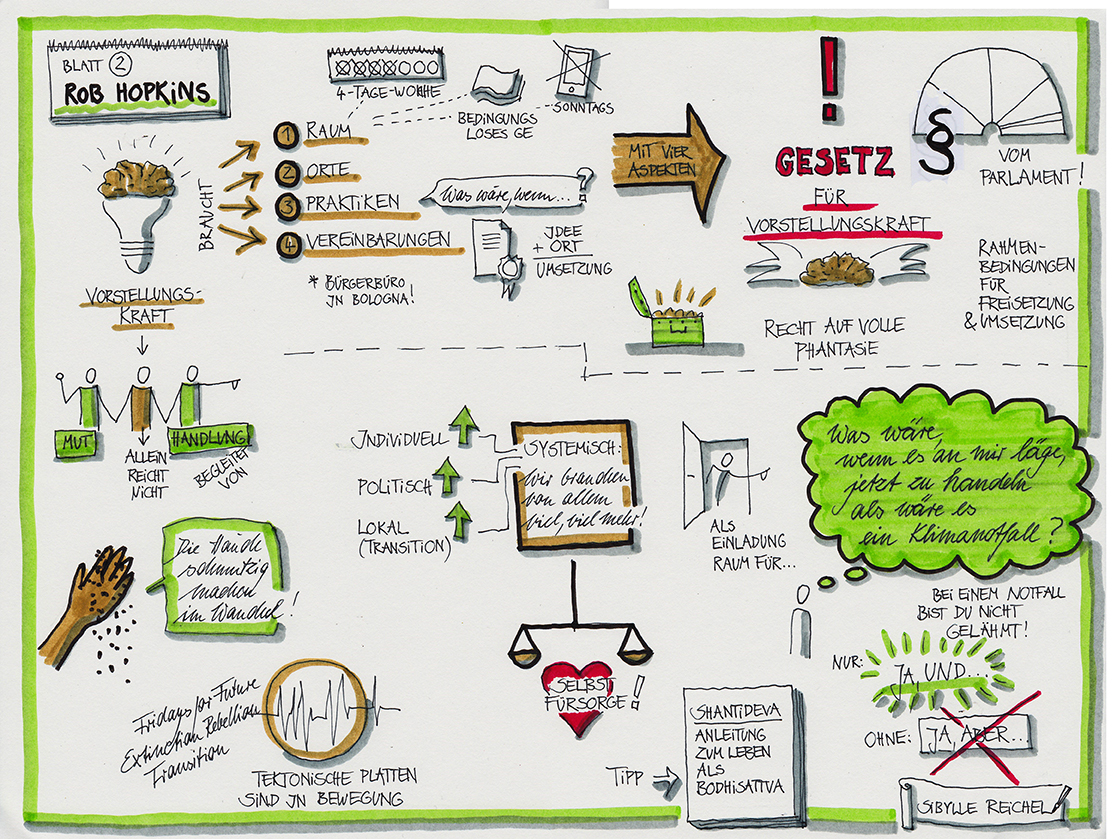 BLATT 2
ROB HOPKINS
4-TAGE-WOCHE
BEDINGUNGS
LOSES GE
SONNTAGS
BRAUCHT
1 RAUM
2 ORTE
3 PRAKTIKEN
4 VEREINBARUNGEN
Was wäre, wenn...?!
* BÜRGERBÜRO
IN BOLOGNA!
IDEE
+ ORT
UMSETZUNG
VORSTELLUNGS-
KRAFT
MIT VIER
ASPEKTEN
!
GESETZ
FÜR
VORSTELLUNGSKRAFT
§
VOM
PARLAMENT!
RAHMEN-
BEDINGUNGEN
FÜR
FREISETZUNG
& UMSETZUNG
RECHT AUF VOLLE
PHANTASIE
MUT
ALLEIN
REICHT
NICHT
HANDLUNG
BEGLEITET
VON
Die Hände
schmutzig
machen
im Wandel!
INDIVIDUELL
POLITISCH
LOKAL
(TRANSITION)
SYSTEMISCH:
Wir brauchen
von allem
viel, viel mehr!
SELBST
FÜRSORGE!
ALS
EINLADUNG
RAUM FÜR...
Was wäre,
wenn es an mir läge,
jetzt zu handeln
als wäre es
ein Klimanotfall?
BEI EINEM NOTFALL
BIST DU NICHT
GELÄHMT!
NUR:
JA, UND...
OHNE:
JA, ABER...
Fridays for Future
Extinction Rebellion
Transition
TEKTONISCHE PLATTEN
SIND IN BEWEGUNG
TIPP
SHANTIDEVA
ANLEITUNG
ZUM LEBEN
ALS
BODHISATTVA
SIBYLLE REICHEL